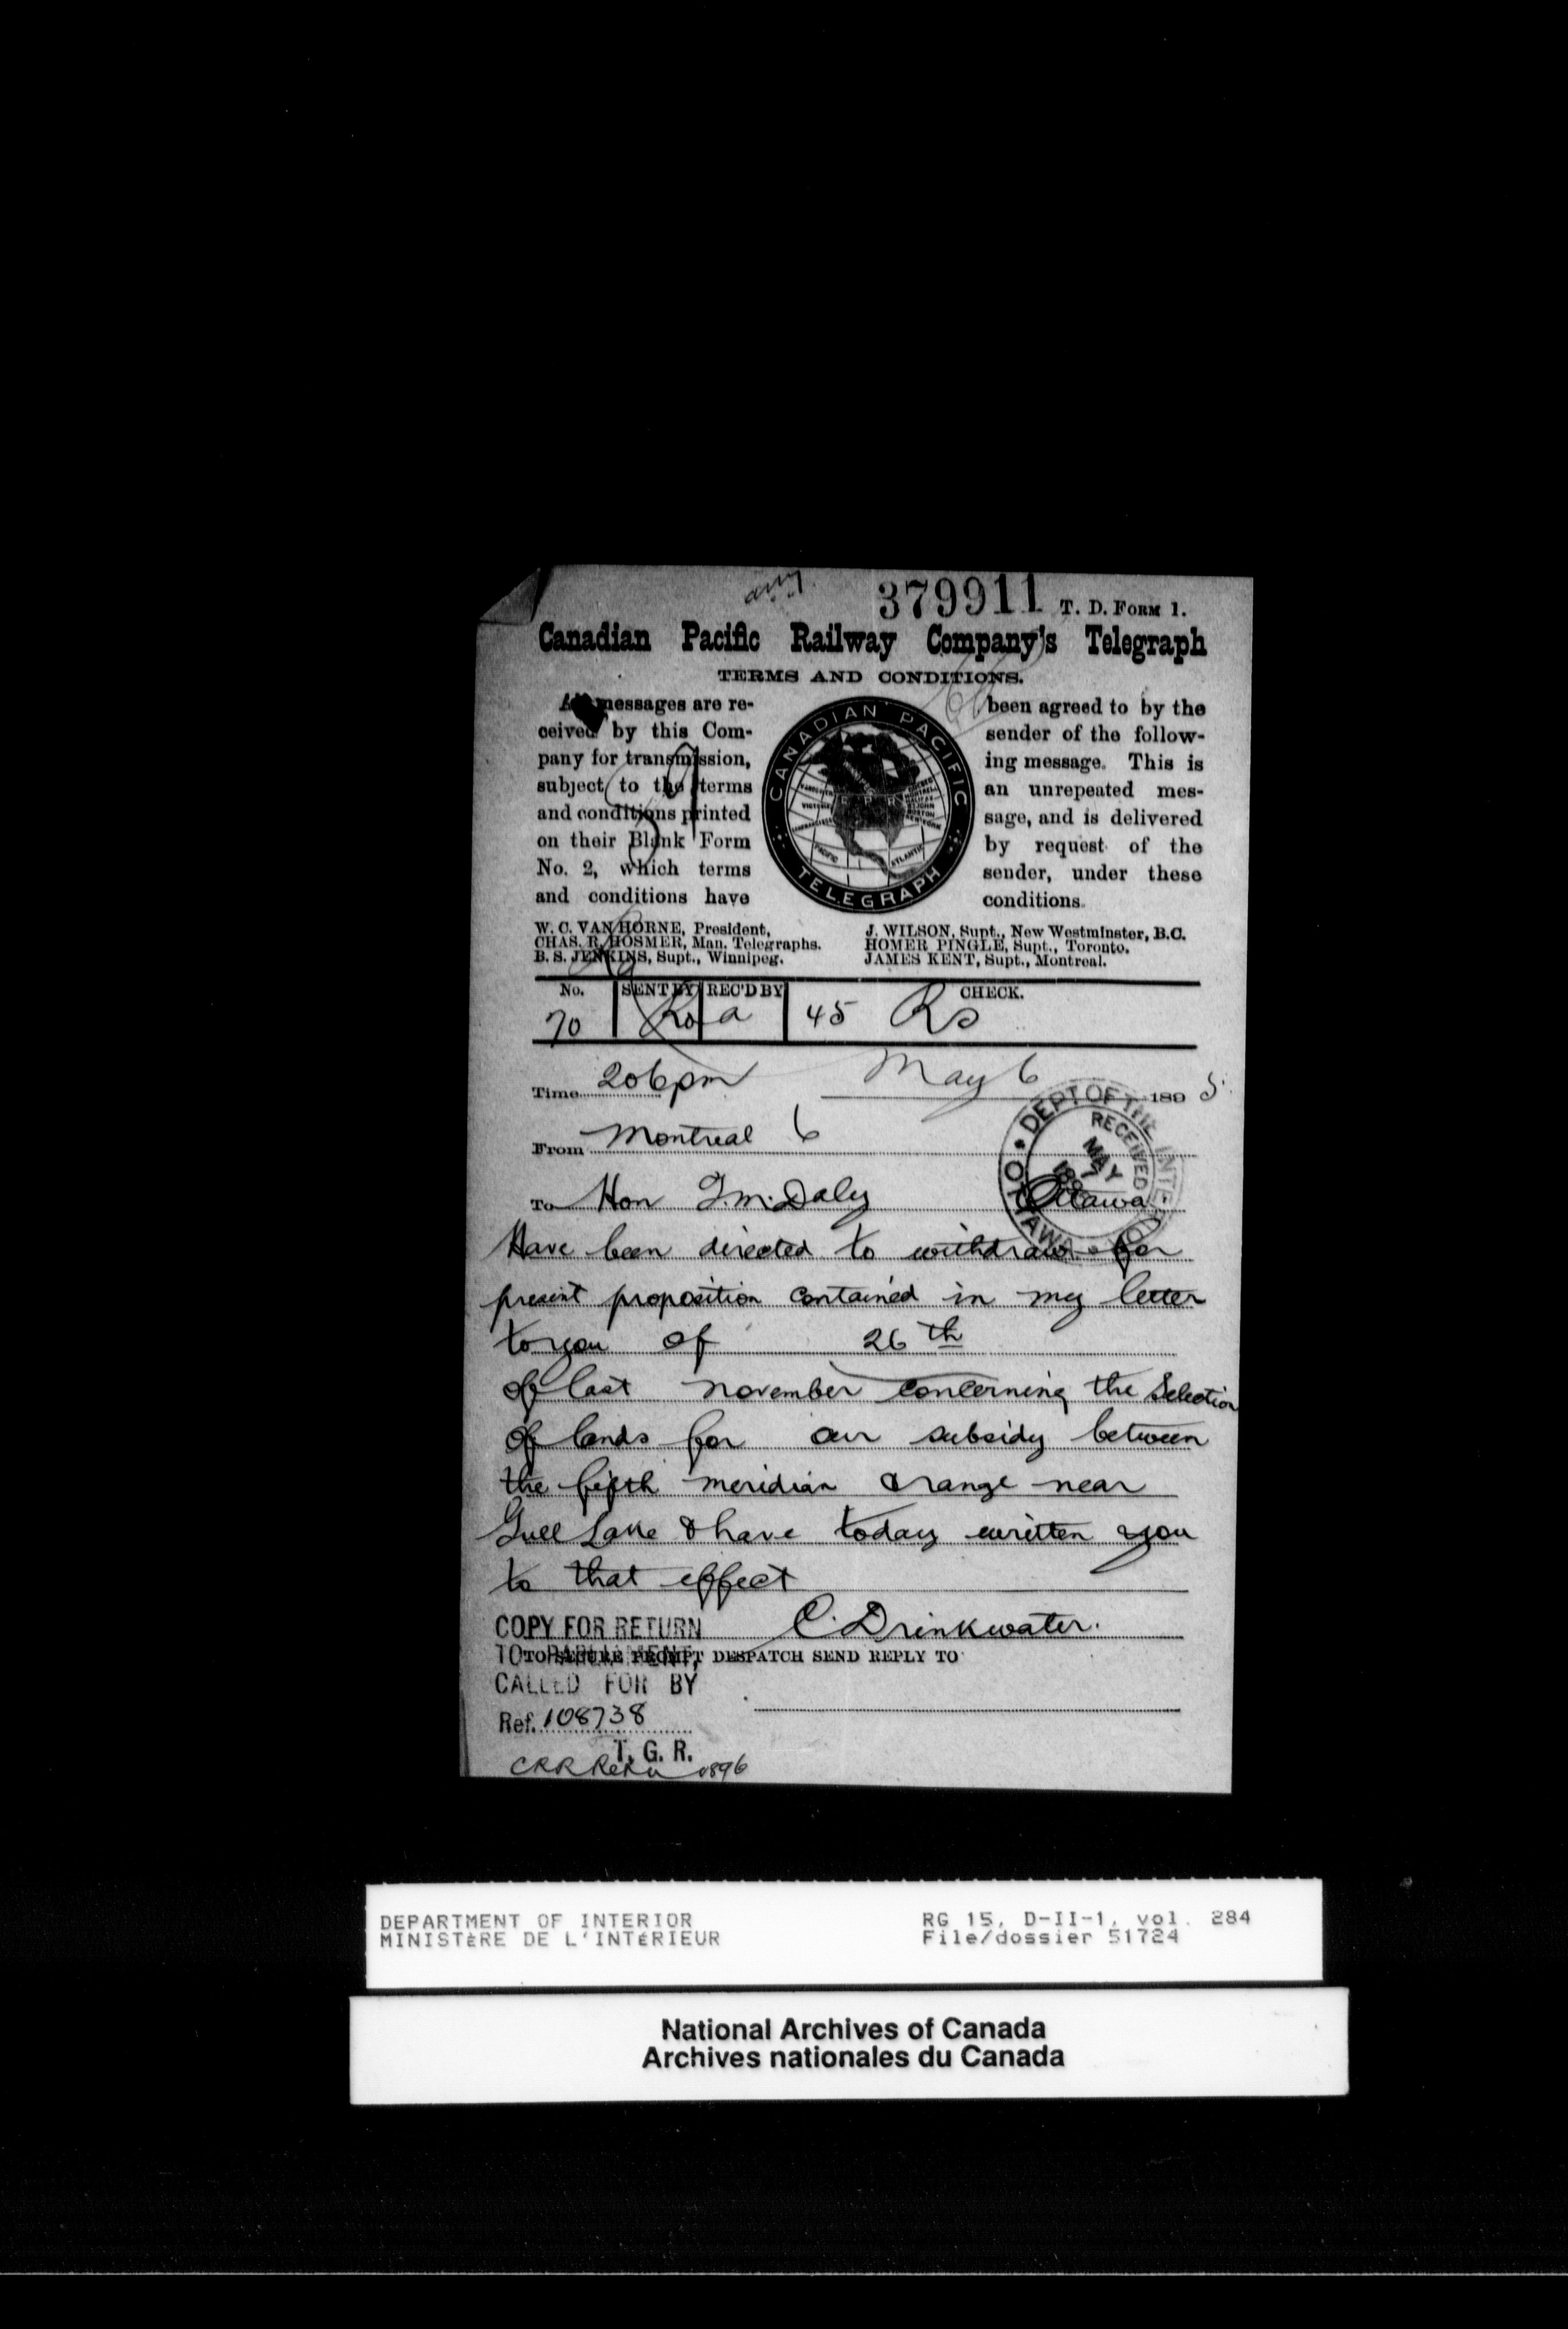 379911 T. D. FORM 1.
Canadian Pacific Railway Company's Telegraph
TERMS AND CONDITIONS.
All messages are re-
ceived by this Com-
pany for transmission,
subject to the terms
and conditions printed
on their Blank Form
No. 2, which terms
and conditions have
CANADIAN PACIFIC
TELEGRAPH
been agreed to by the
sender of the follow-
ing message. This is
an unrepeated mes-
sage, and is delivered
by request of the
sender, under these
conditions.
W. C. VAN HORNE, President,
CHAS. R. HOSMER, Man. Telegraphs.
B. S. JENKINS, Supt., Winnipeg.
J. WILSON, Supt., New Westminster, B.C.
HOMER PINGLE, Supt., Toronto.
JAMES KENT, Supt., Montreal.
No. SENT BY REC'D BY CHECK.
70 Ro a 45 Ro
Time 206pm May 6 1895
From Montreal 6
To Hon T.M. Daly Ottawa
DEPT OF THE INTERIOR
RECEIVED
MAY
7
OTTAWA
Have been directed to withdraw for
present proposition contained in my letter
to you of 26th
of last November concerning the Selection
of lands for our subsidy between
the fifth meridian & range near
Gull Lake & have today written you
to that effect
C. Drinkwater.
TO SECURE PROMPT DESPATCH SEND REPLY TO
COPY FOR RETURN
TO PARLIAMENT,
CALLED FOR BY
Ref. 108738
T. G. R.
1896
DEPARTMENT OF INTERIOR
MINISTÈRE DE L'INTÉRIEUR
RG 15, D-II-1, vol. 284
File/dossier 51724
National Archives of Canada
Archives nationales du Canada